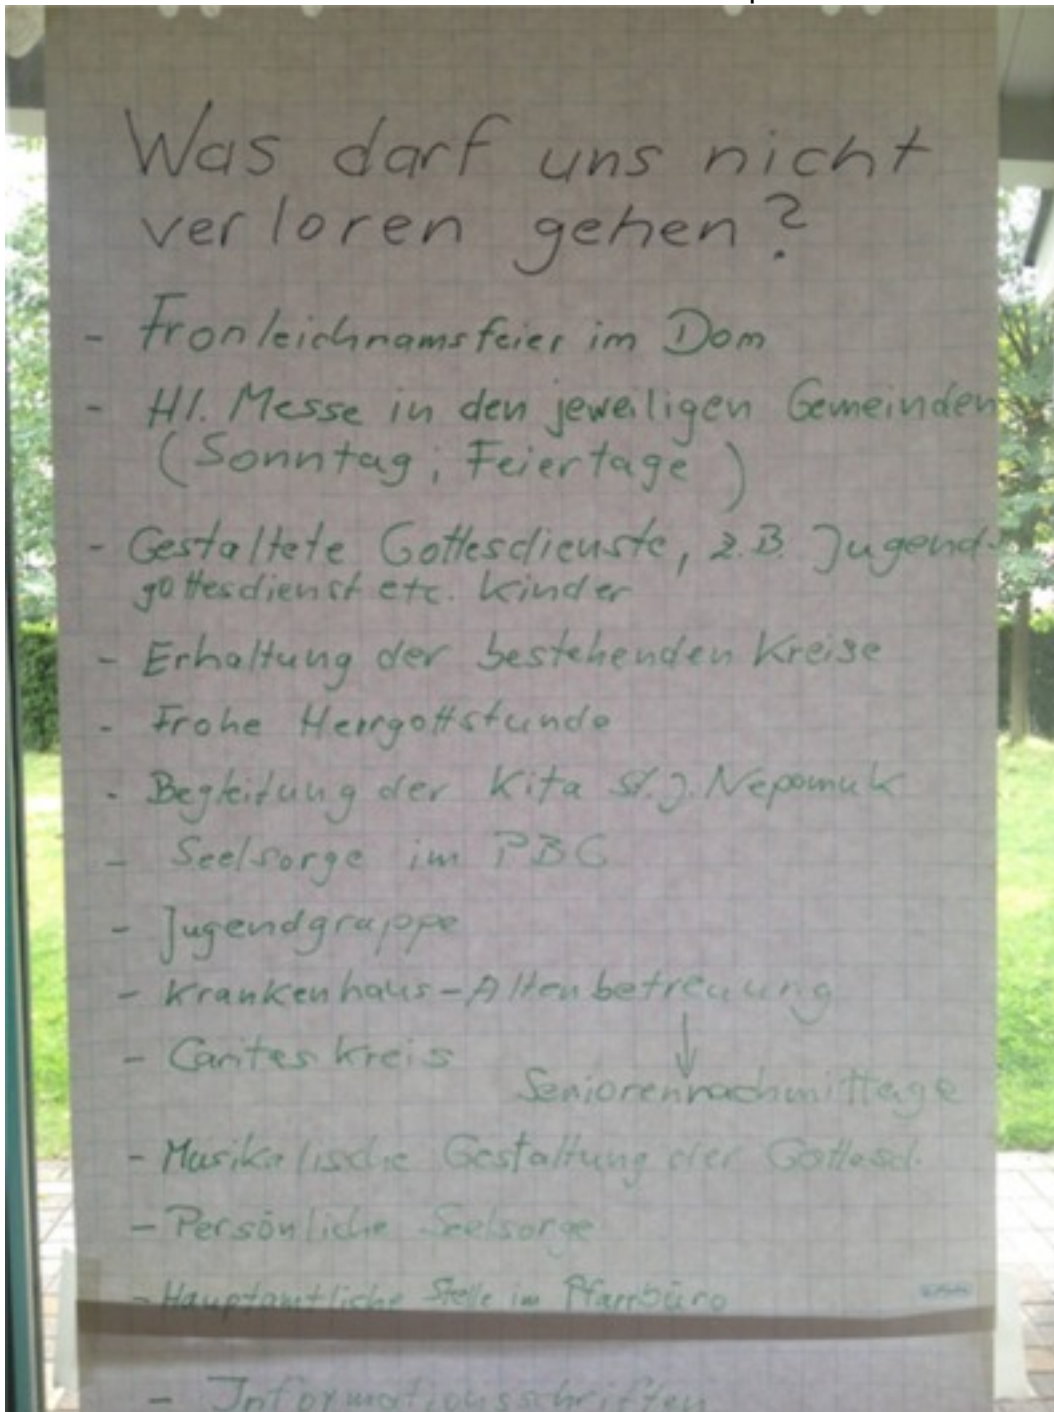 Was darf uns nicht
verloren gehen?
- Fronleichnamsfeier im Dom
- Hl. Messe in den jeweiligen Gemeinden
(Sonntag; Feiertage)
- Gestaltete Gottesdienste, z.B. Jugend-
gottesdienst etc. Kinder
- Erhaltung der bestehenden Kreise
- Frohe Herrgottstunde
- Begleitung der Kita St. J. Nepomuk
- Seelsorge im PBC
- Jugendgruppe
- Krankenhaus-Altenbetreuung
- Caritas Kreis
↓
Seniorennachmittage
- Musikalische Gestaltung der Gottesd.
- Persönliche Seelsorge
- Hauptamtliche Stelle im Pfarrbüro
- Informationsschriften